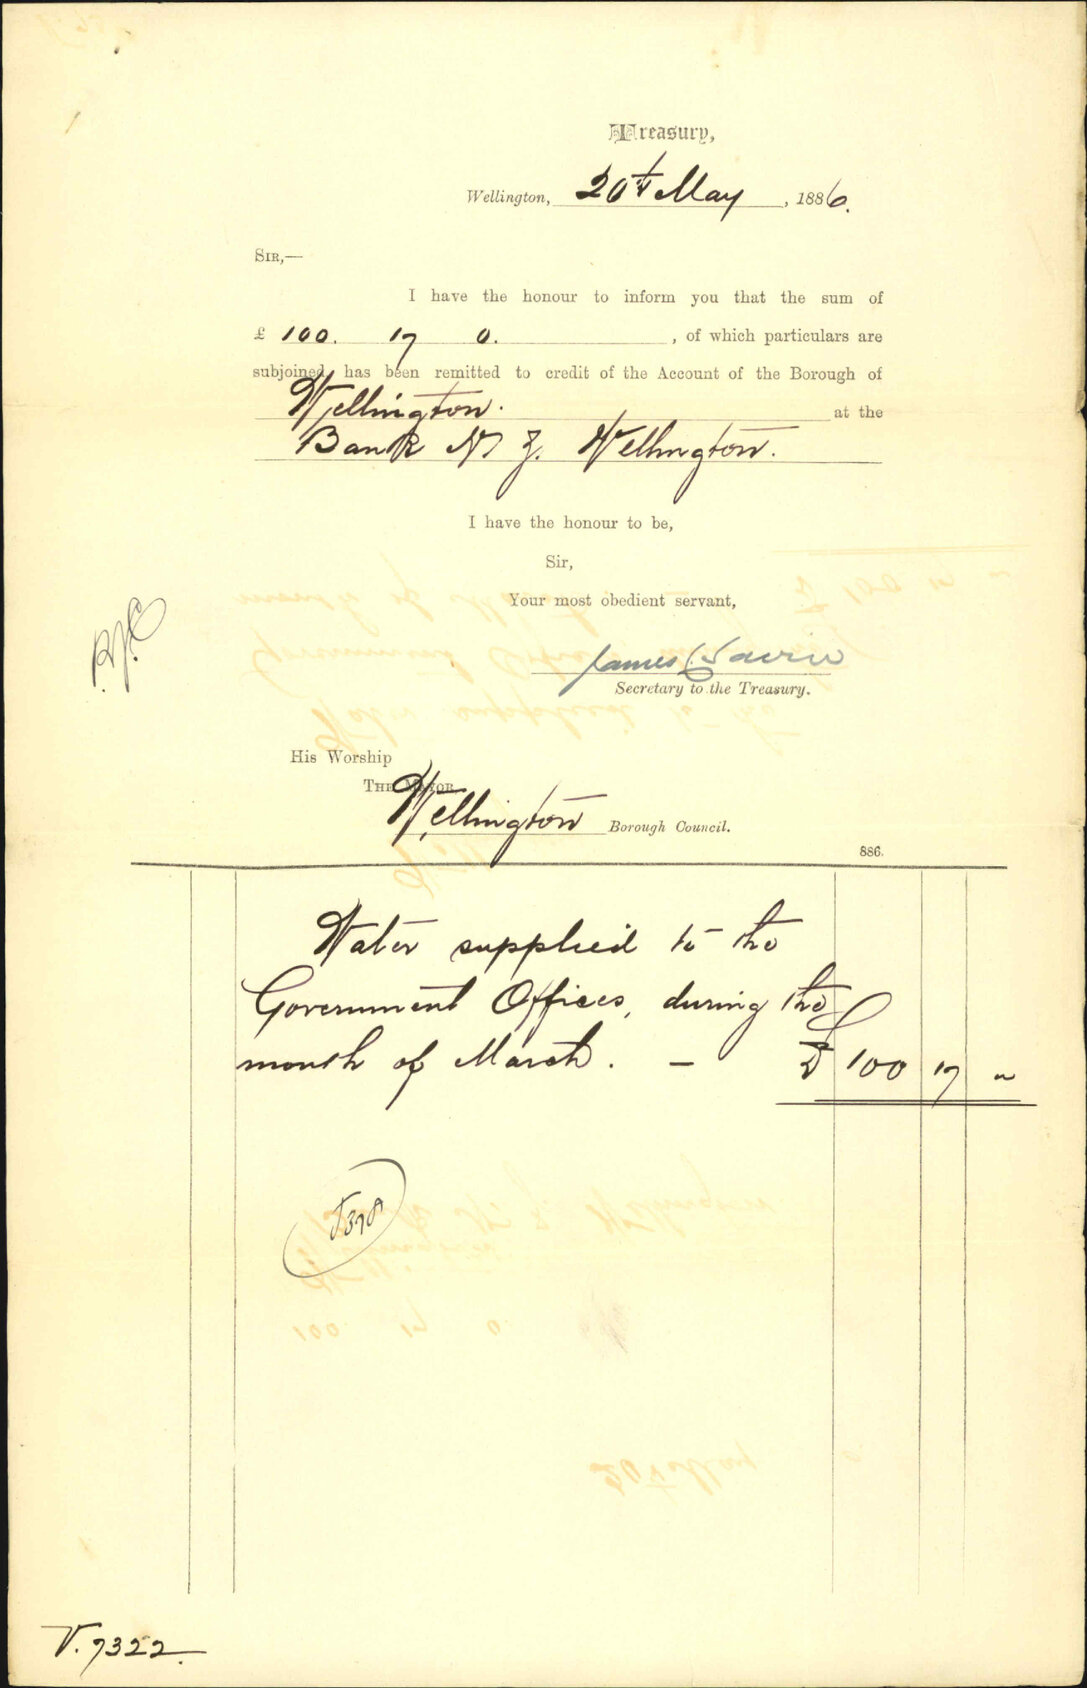 Treasury,
Wellington, 20th May, 1886.
SIR,—
I have the honour to inform you that the sum of
£ 100. 17 0. , of which particulars are
subjoined, has been remitted to credit of the Account of the Borough of
Wellington. at the
Bank N Z. Wellington.
I have the honour to be,
Sir,
Your most obedient servant,
James C Gavin
Secretary to the Treasury.
His Worship
THE MAYOR
Wellington Borough Council.
886.
Water supplied to the
Government Offices, during the
month of March. — £ 100 17 "
V. 7322.